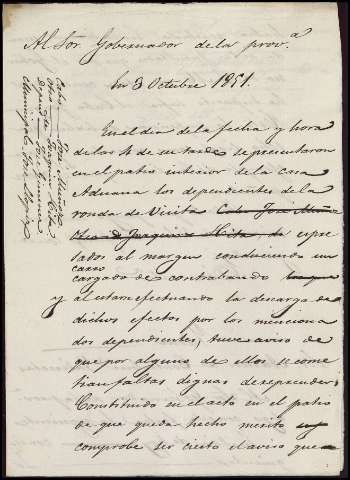 Al Sor. Gobernador de la prov.a
En 3 Octubre 1851.
Cabo — José Muñoz
Otro — Joaquin Hita
Dependte José Gimenez
Municipal
En el dia de la fecha y hora
de las 4 de su tarde se presentaron
en el patio interior de la casa
Aduana los dependientes de la
ronda de Visita Cabo José Muñoz
Otro id Joaquin Hita de espre
sados al margen conduciendo un
carro
cargado de contrabando
y al estar efectuando la descarga de
dichos efectos por los menciona
dos dependientes, tuve aviso de
que por alguno de ellos se come
tian faltas dignas de reprender;
Constituido en el acto en el patio
de que queda hecho merito
comprobe ser cierto el aviso que